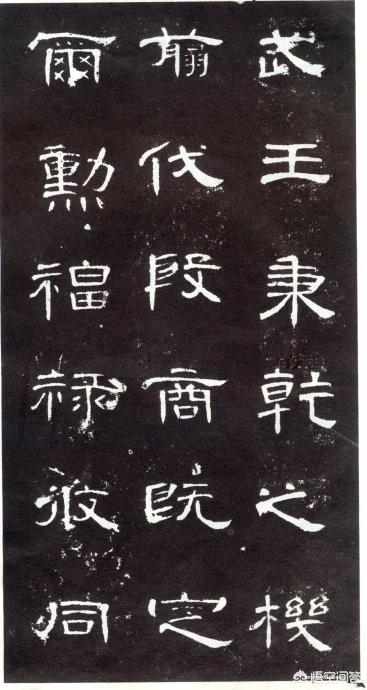 武王秉乾之機
翦伐殷商既定
爾勳福祿攸同
悟空问答